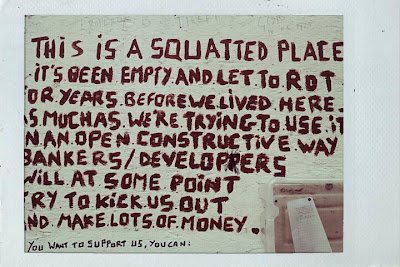 THIS IS A SQUATTED PLACE
IT'S BEEN EMPTY.AND LET TO ROT
OR.YEARS.BEFORE.WE.LIVED HERE.
AS MUCH AS.WE'RE TRYING.TO USE.IT
N.AN.OPEN.CONSTRUCTIVE.WAY
BANKERS/DEVELOPPERS
WILL AT SOME POINT
TRY TO KICK.US.OUT
ND MAKE.LOTS.OF MONEY.
YOU WANT TO SUPPORT US, YOU CAN: